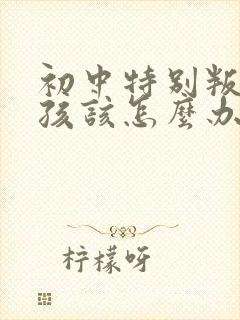 初中特别叛
孩該怎麼办
柠檬呀